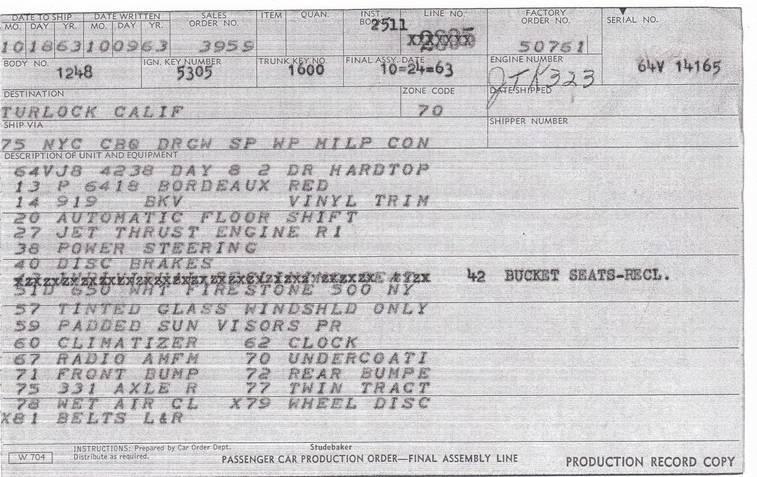 DATE TO SHIP DATE WRITTEN SALES ORDER NO. ITEM QUAN. INST. BODY LINE NO. FACTORY ORDER NO. SERIAL NO.
MO. DAY YR. MO. DAY YR.
2511
101863 100963 3959 50761 64V 14165
BODY NO. IGN. KEY NUMBER TRUNK KEY NO. FINAL ASSY. DATE ENGINE NUMBER
1248 5305 1600 10=24=63 JTK323
DESTINATION ZONE CODE DATE SHIPPED
TURLOCK CALIF 70
SHIP VIA SHIPPER NUMBER
75 NYC CBQ DRGW SP WP MILP CON
DESCRIPTION OF UNIT AND EQUIPMENT
64VJ8 4238 DAY 8 2 DR HARDTOP
13 P 6418 BORDEAUX RED
14 919 BKV VINYL TRIM
20 AUTOMATIC FLOOR SHIFT
27 JET THRUST ENGINE R1
38 POWER STEERING
40 DISC BRAKES
42 BUCKET SEATS-RECL.
51D 650 WHT FIRESTONE 500 NY
57 TINTED GLASS WINDSHLD ONLY
59 PADDED SUN VISORS PR
60 CLIMATIZER 62 CLOCK
67 RADIO AMFM 70 UNDERCOATI
71 FRONT BUMP 72 REAR BUMPE
75 331 AXLE R 77 TWIN TRACT
78 WET AIR CL X79 WHEEL DISC
X81 BELTS L&R
W 704 INSTRUCTIONS: Prepared by Car Order Dept. Distribute as required.
Studebaker
PASSENGER CAR PRODUCTION ORDER—FINAL ASSEMBLY LINE PRODUCTION RECORD COPY